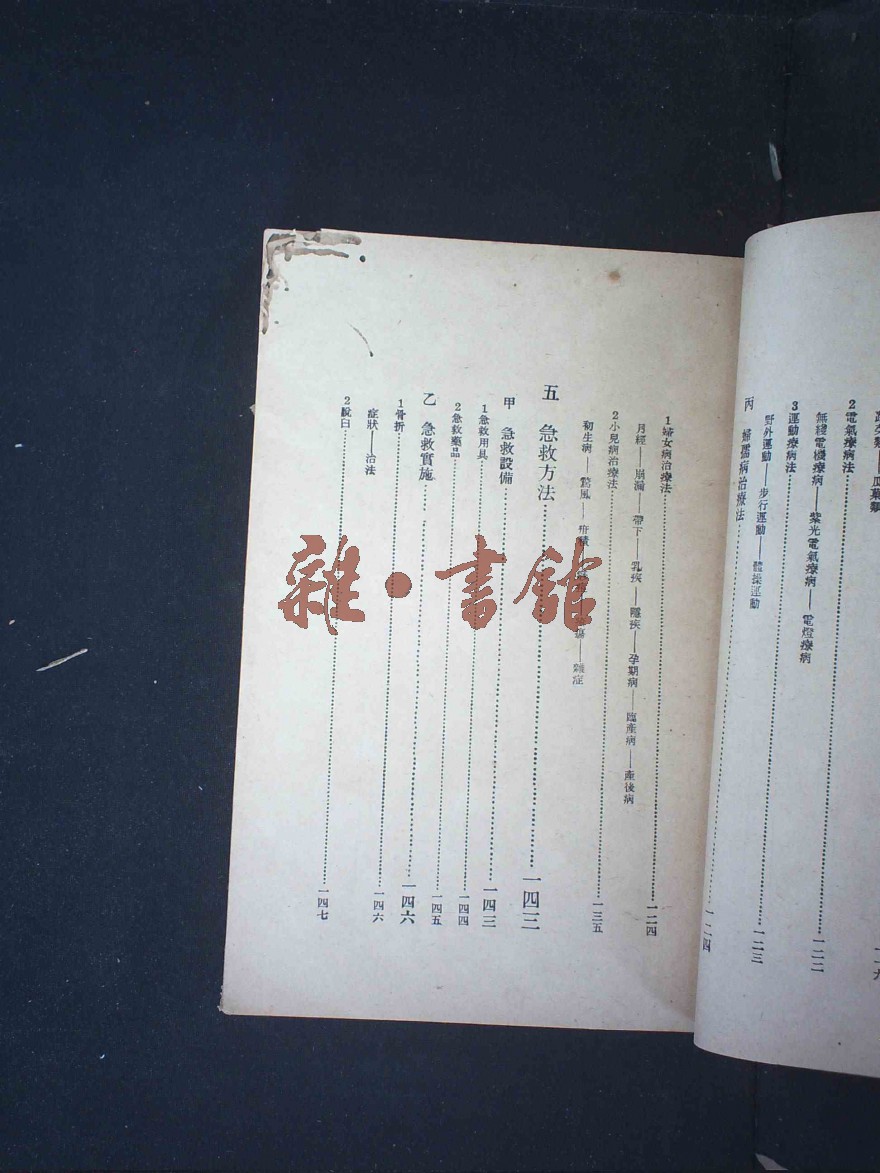 瓜菓類
一一九
2電氣療病法……一二二
無綫電機療病——紫光電氣療病——電燈療病
3運動療病法……一二三
野外運動——步行運動——體操運動
丙 婦孺病治療法……一二四
1婦女病治療法……一二四
月經——崩漏——帶下——乳疾——隱疾——孕期病——臨產病——產後病
2小兒病治療法……一三五
初生病——驚風——疳積——雜症
五 急救方法……一四三
甲 急救設備……一四三
1急救用具……一四四
2急救藥品……一四五
乙 急救實施……一四六
1骨折……一四六
症狀——治法
2脫臼……一四七
雜·書館